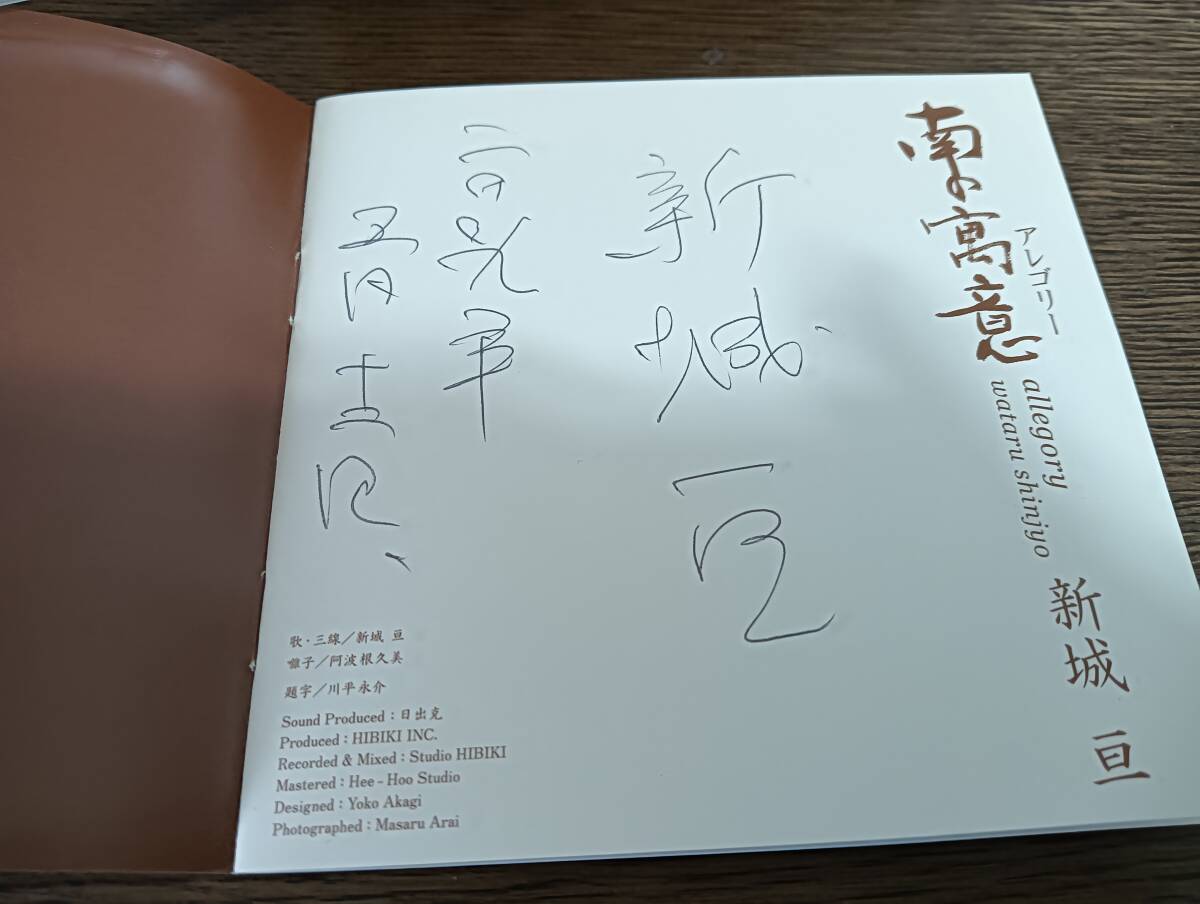 南の寓意
アレゴリー
allegory
wataru shinjyo
新城 亘
新城 亘
五月十五日、
歌・三線／新城 亘
囃子／阿波根久美
題字／川平永介
Sound Produced：日出克
Produced：HIBIKI INC.
Recorded & Mixed：Studio HIBIKI
Mastered：Hee－Hoo Studio
Designed：Yoko Akagi
Photographed：Masaru Arai